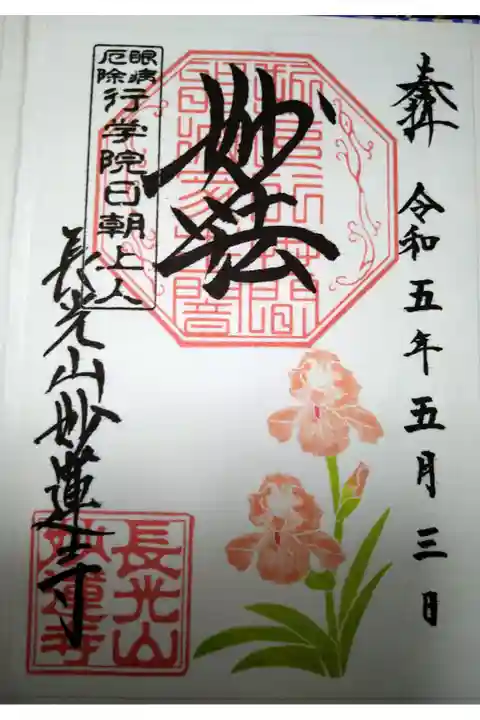 奉拝 令和五年五月三日
妙法
眼病
厄除
行学院日朝上人
長光山妙蓮寺
長光山
妙蓮寺